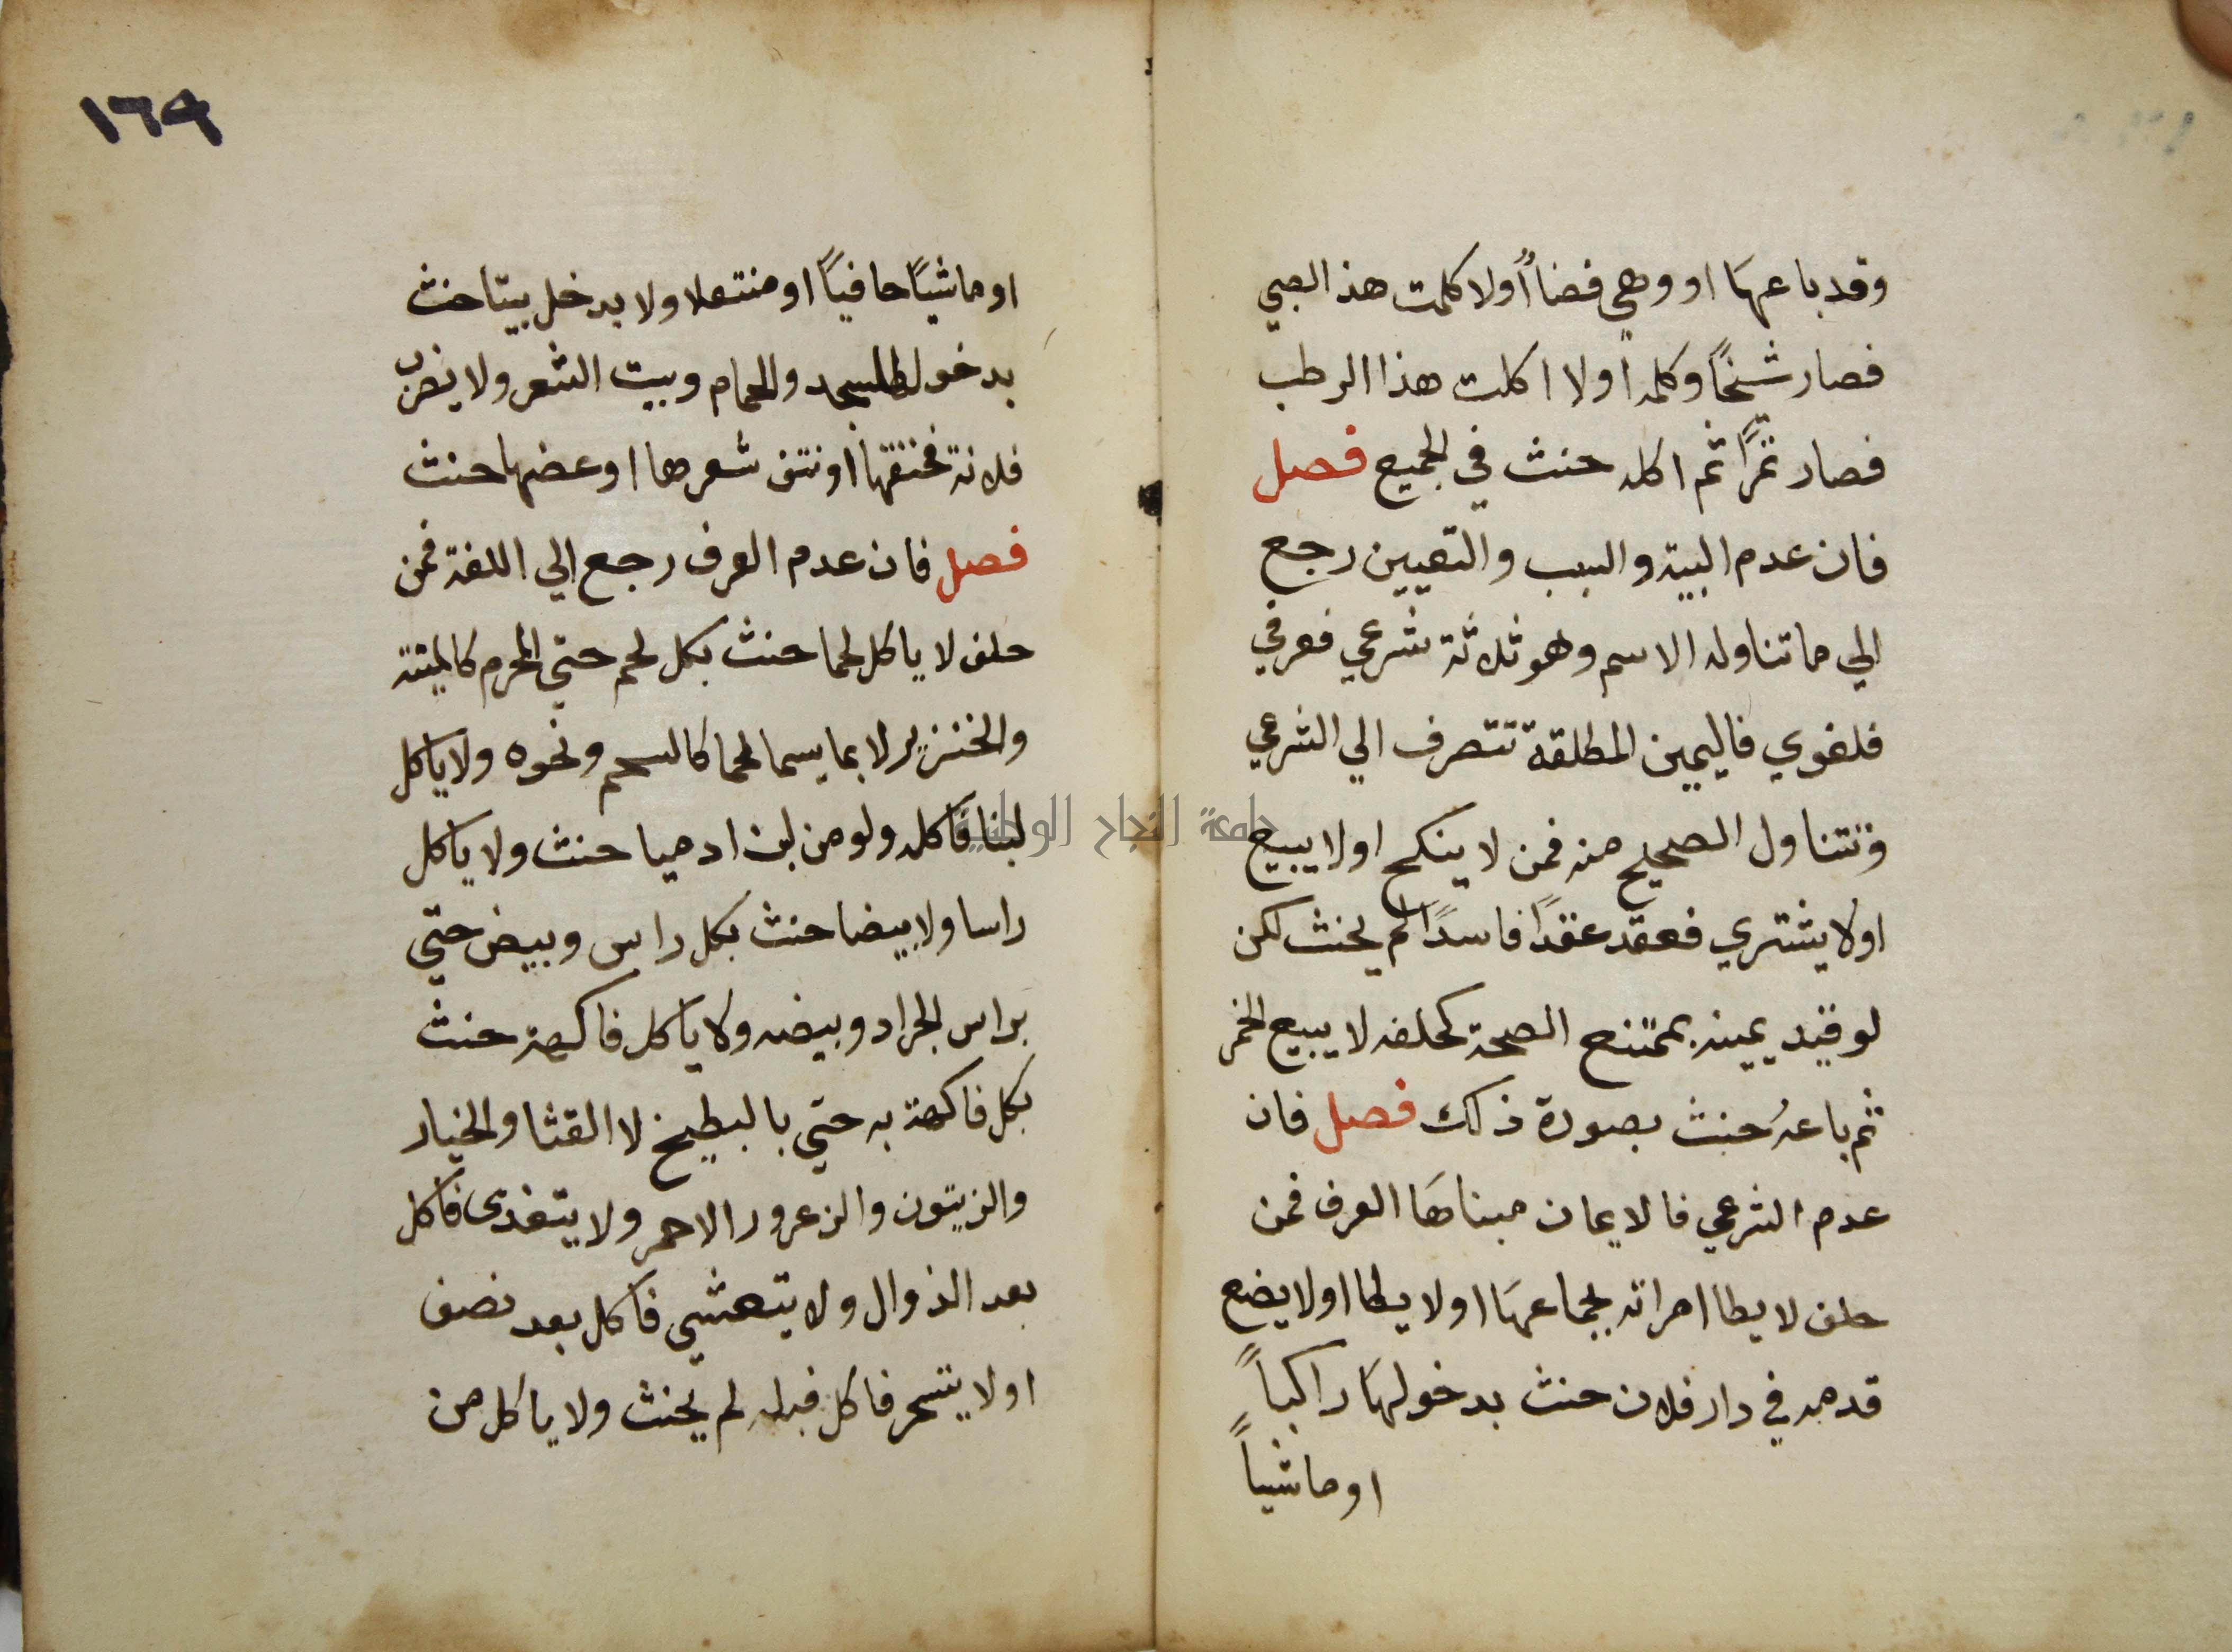 وقد باعها او وهي فضاأ ولا كلمت هذ الصبي
فصار شيخًا وكلمه اولا اكلت هذا الرطب
فصار تمرًا ثم اكله حنث في الجميع فصل
فان عدم النية والسبب والتعيين رجع
الي ما تناوله الاسم وهو ثلاثة شرعي فعرفي
فلغوي فاليمين المطلقة تنصرف الي الشرعي
وتتناول الصحيح منه فمن لا ينكح اولا يبيع
اولا يشتري فعقد عقدًا فاسدًا لم يحنث لكن
لو قيد يمينه بممتنع الصحة كحلفه لا يبيع الخمر
ثم باعهُ حنث بصورة ذلك فصل فان
عدم الشرعي فالايمان مبناهَا العرف فمن
حلف لا يطا امراته بجماعهَا اولا يطا اولا يضع
قدمه في دار فلان حنث بدخولهَا راكباً
او ماشياً
١٦٩
او ماشيًا حافيًا او منتعلا ولا يدخل بيتا حنث
بدخول المسجد والحمام وبيت الشعر ولا يضرب
فلانة فخنقها او نتف شعرها او عضها حنث
فصل فان عدم العرف رجع الي اللغة فمن
حلف لا ياكل لحما حنث بكل لحم حتي المحرم كالميتة
والخنزير لا بما يسما لحما كالسحم ونحوه ولا ياكل
لبنا فاكله ولو من لبن ادميا حنث ولا ياكل
راسا ولا بيضا حنث بكل راس وبيض حتي
براس الجراد وبيضه ولا ياكل فاكهة حنث
بكل فاكهة به حتي بالبطيخ لا القثا والخيار
والزيتون والزعرور الاحمر ولا يتغدى فاكل
بعد الزوال ولا يتعشي فاكل بعد نصف
اولا يتسحر فاكل قبله لم يحنث ولا ياكل من
جامعة النجاح الوطنية